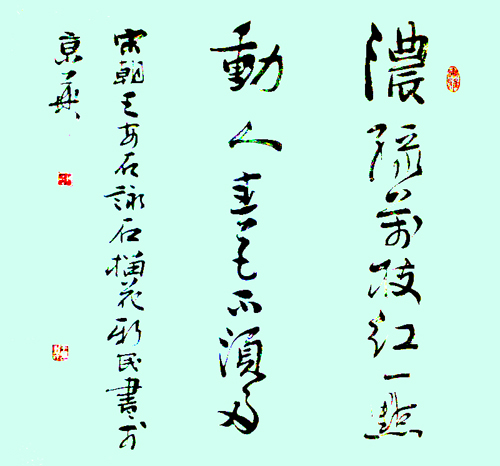 濃綠萬枝紅一點
動人春色不須多
宋朝王安石詠石榴花新民書於
京華